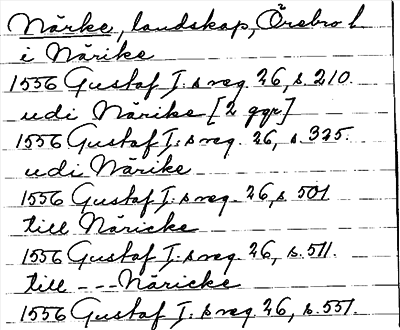 Närke, landskap, Örebro l
i Närike
1556 Gustaf I:s reg. 26, s. 210.
udi Närike [2 ggr]
1556 Gustaf I:s reg. 26, s. 325.
udi Närike
1556 Gustaf I:s reg. 26, s. 501
till Näricke
1556 Gustaf I:s reg. 26, s. 511.
till --- Näricke
1556 Gustaf I:s reg. 26, s. 551.